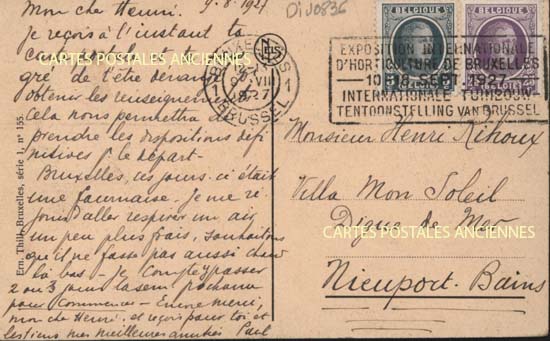 9-8-1927
Mon cher Henri.
Je reçois à l'instant ta
carte postale et te
gré de l'être devant
obtenir les renseignements
cela nous permettra de
prendre les dispositions défi-
nitives pr le départ-
Bruxelles, ces jours-ci était
une fournaise. Je me ré-
jouis d'aller respirer un air
un peu plus frais, souhaitons
qu'il ne fasse pas aussi chaud
là bas - Je compte y passer
2 ou 3 jours la sem. prochaine
pour commencer - Encore merci,
mon cher Henri. et reçois pour toi et
les tiens mes meilleures amitiés Paul
Ern. Thill, Bruxelles, série 1, n° 155.
Di J0836
BELGIQUE BELGIQUE
BRUXELLES
1 1
VIII
1927
BRUSSEL
EXPOSITION INTERNATIONALE
D'HORTICULTURE DE BRUXELLES
10-18 SEPT. 1927
INTERNATIONALE TUINBOUW
TENTOONSTELLING VAN BRUSSEL
Monsieur Henri Rihoux
Villa Mon Soleil
Digue de Mer
Nieuport-Bains
CARTES POSTALES ANCIENNES
CARTES POSTALES ANCIENNES
CARTES POSTALES ANCIENNES